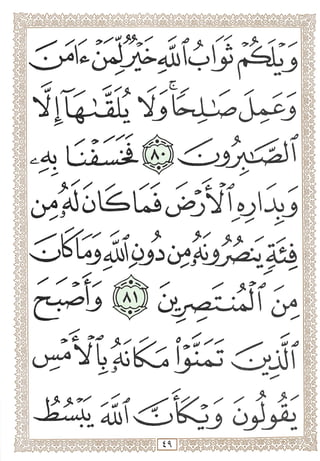 وَيْلَكُمْ ثَوَابُ ٱللَّهِ خَيْرٌ لِّمَنْ ءَامَنَ
وَعَمِلَ صَٰلِحًا ۚ وَلَا يُلَقَّىٰهَآ إِلَّا
ٱلصَّٰبِرُونَ ٨٠ فَخَسَفْنَا بِهِۦ
وَبِدَارِهِ ٱلْأَرْضَ فَمَا كَانَ لَهُۥ مِن
فِئَةٍ يَنصُرُونَهُۥ مِن دُونِ ٱللَّهِ وَمَا كَانَ
مِنَ ٱلْمُنتَصِرِينَ ٨١ وَأَصْبَحَ
ٱلَّذِينَ تَمَنَّوْا۟ مَكَانَهُۥ بِٱلْأَمْسِ
يَقُولُونَ وَيْكَأَنَّ ٱللَّهَ يَبْسُطُ
٤٩